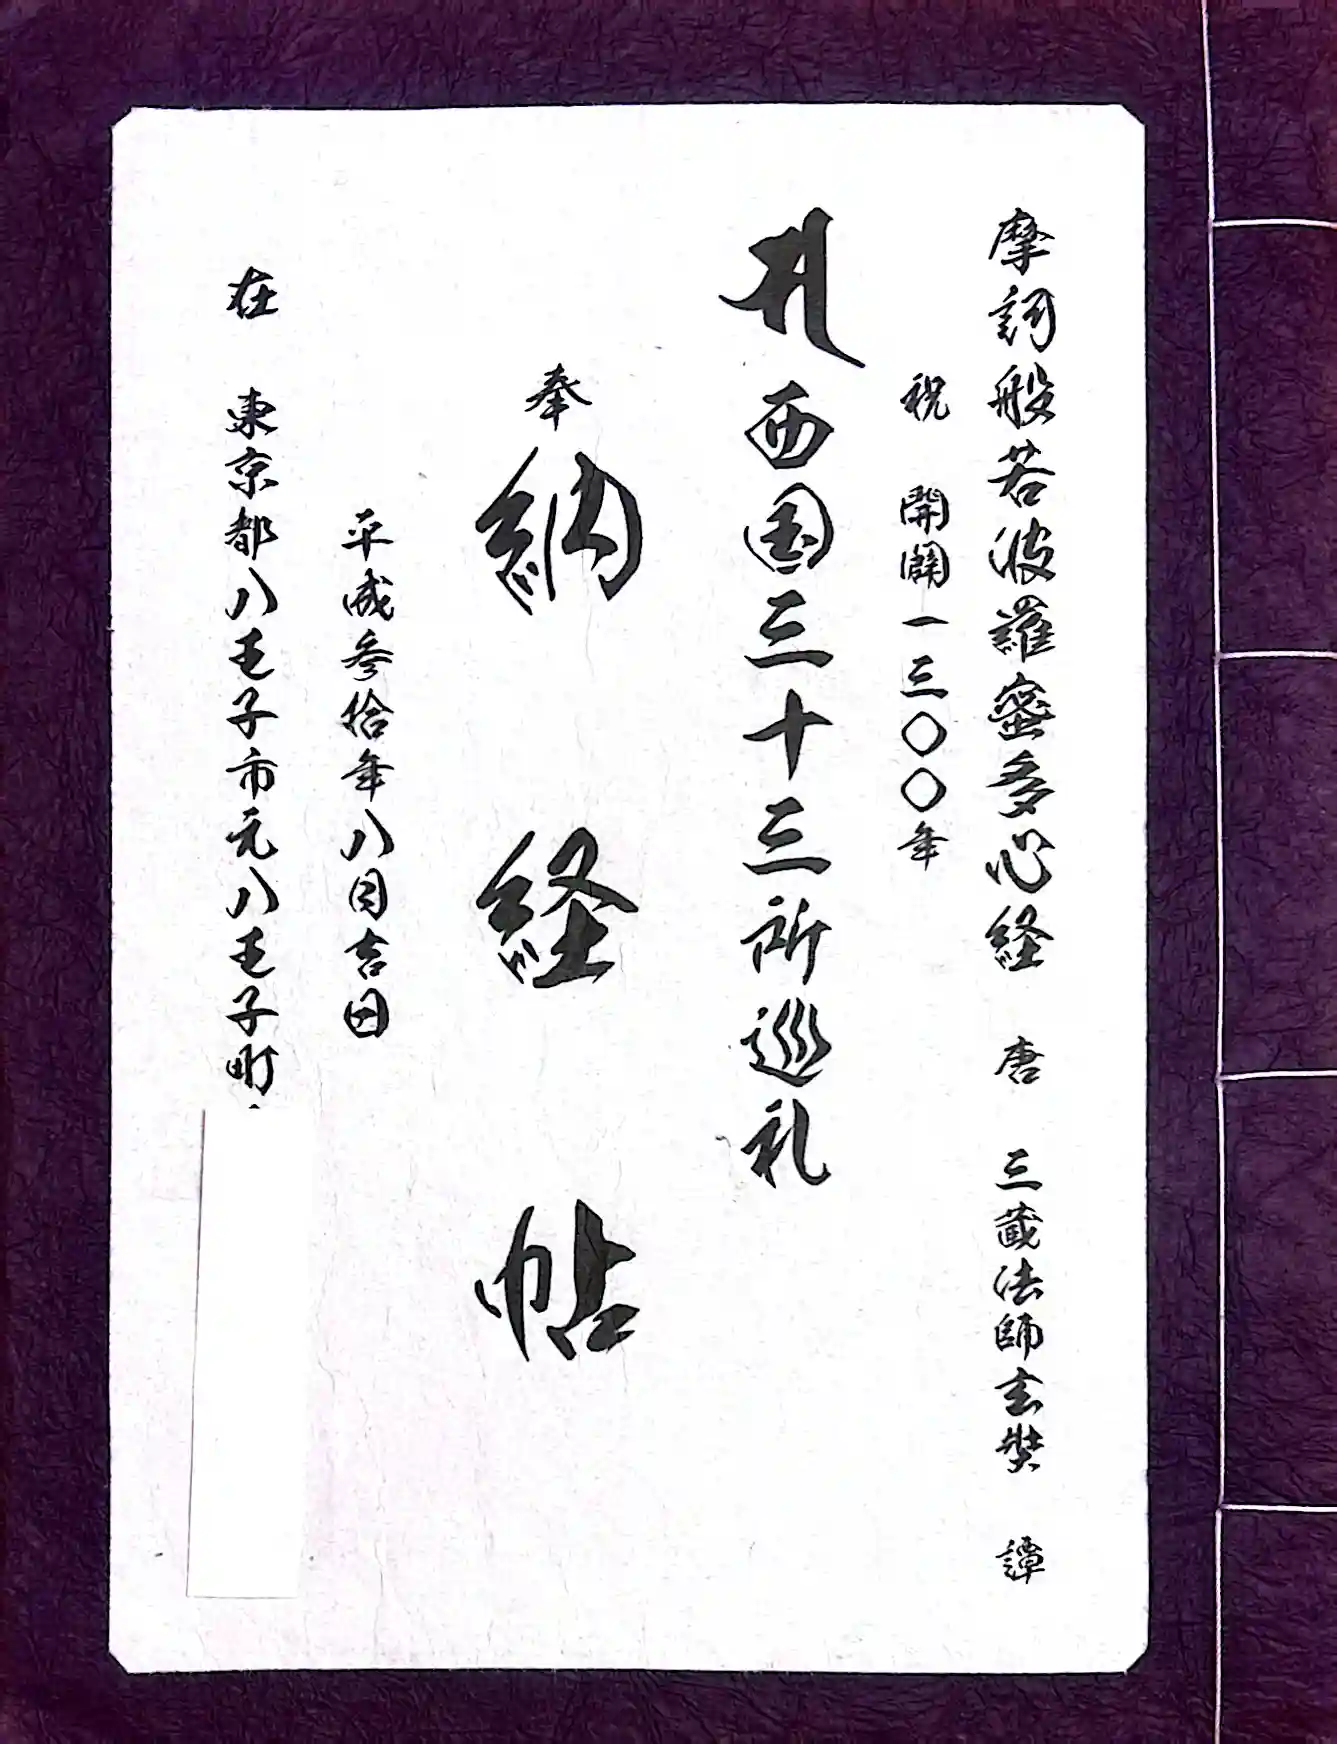 摩訶般若波羅蜜多心経 唐 三蔵法師玄奘 譚
祝 開闢一三〇〇年
西国三十三所巡礼
奉納経帖
平成参拾年八月吉日
在 東京都八王子市元八王子町